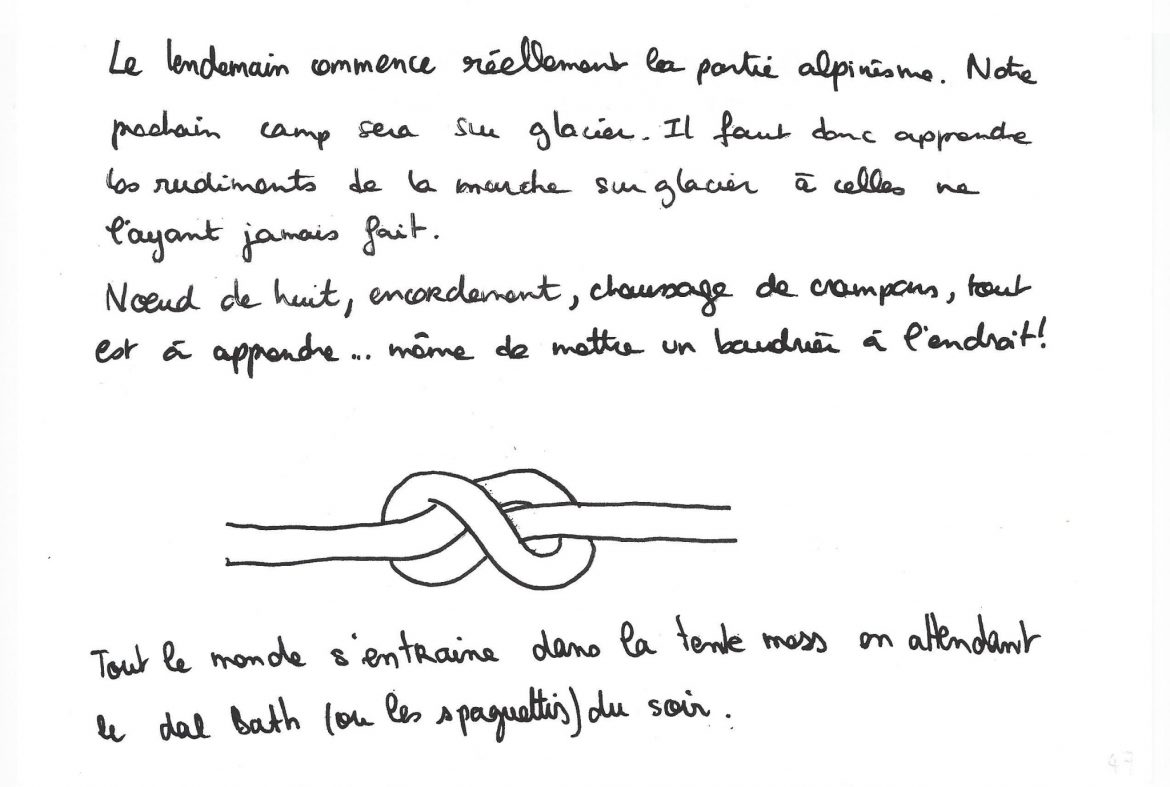 Le lendemain commence réellement la partie alpinisme. Notre
prochain camp sera sur glacier. Il faut donc apprendre
les rudiments de la marche sur glacier à celles ne
l'ayant jamais fait.
Nœud de huit, encordement, chaussage de crampons, tout
est à apprendre... même de mettre un baudrier à l'endroit!
Tout le monde s'entraine dans la tente mess en attendant
le dal Bath (ou les spaguettis) du soir.
47